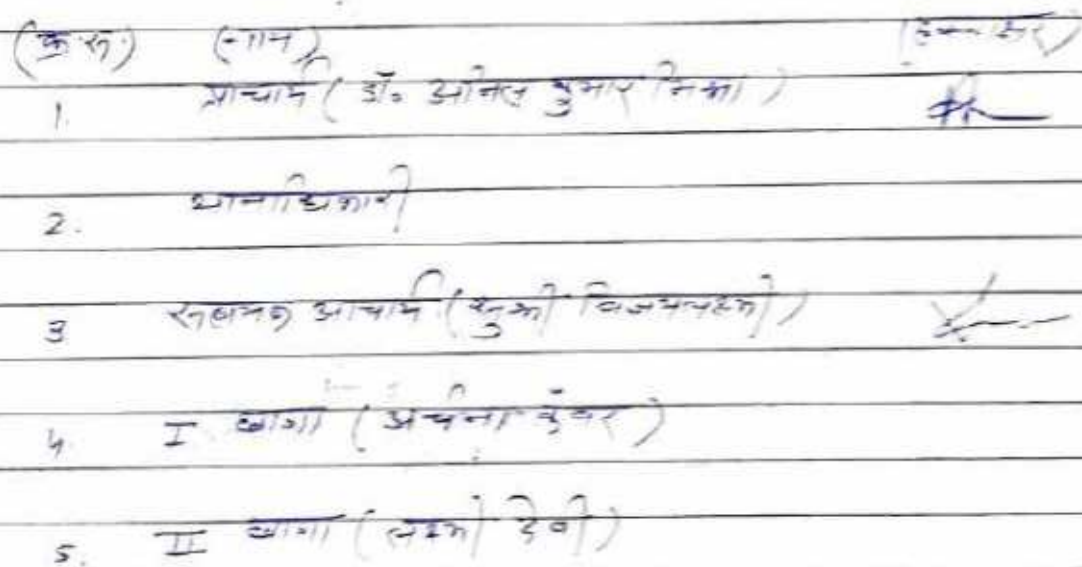 (क्र.सं.) (नाम) (हस्ताक्षर)
1. प्राचार्य ( डॉ॰ अनिल कुमार मिश्रा )
2. थानाधिकारी
3 सहायक आचार्य ( सुश्री विजयलक्ष्मी )
4. I छात्रा ( अर्चना कुँवर )
5. II छात्रा ( लक्ष्मी देवी )